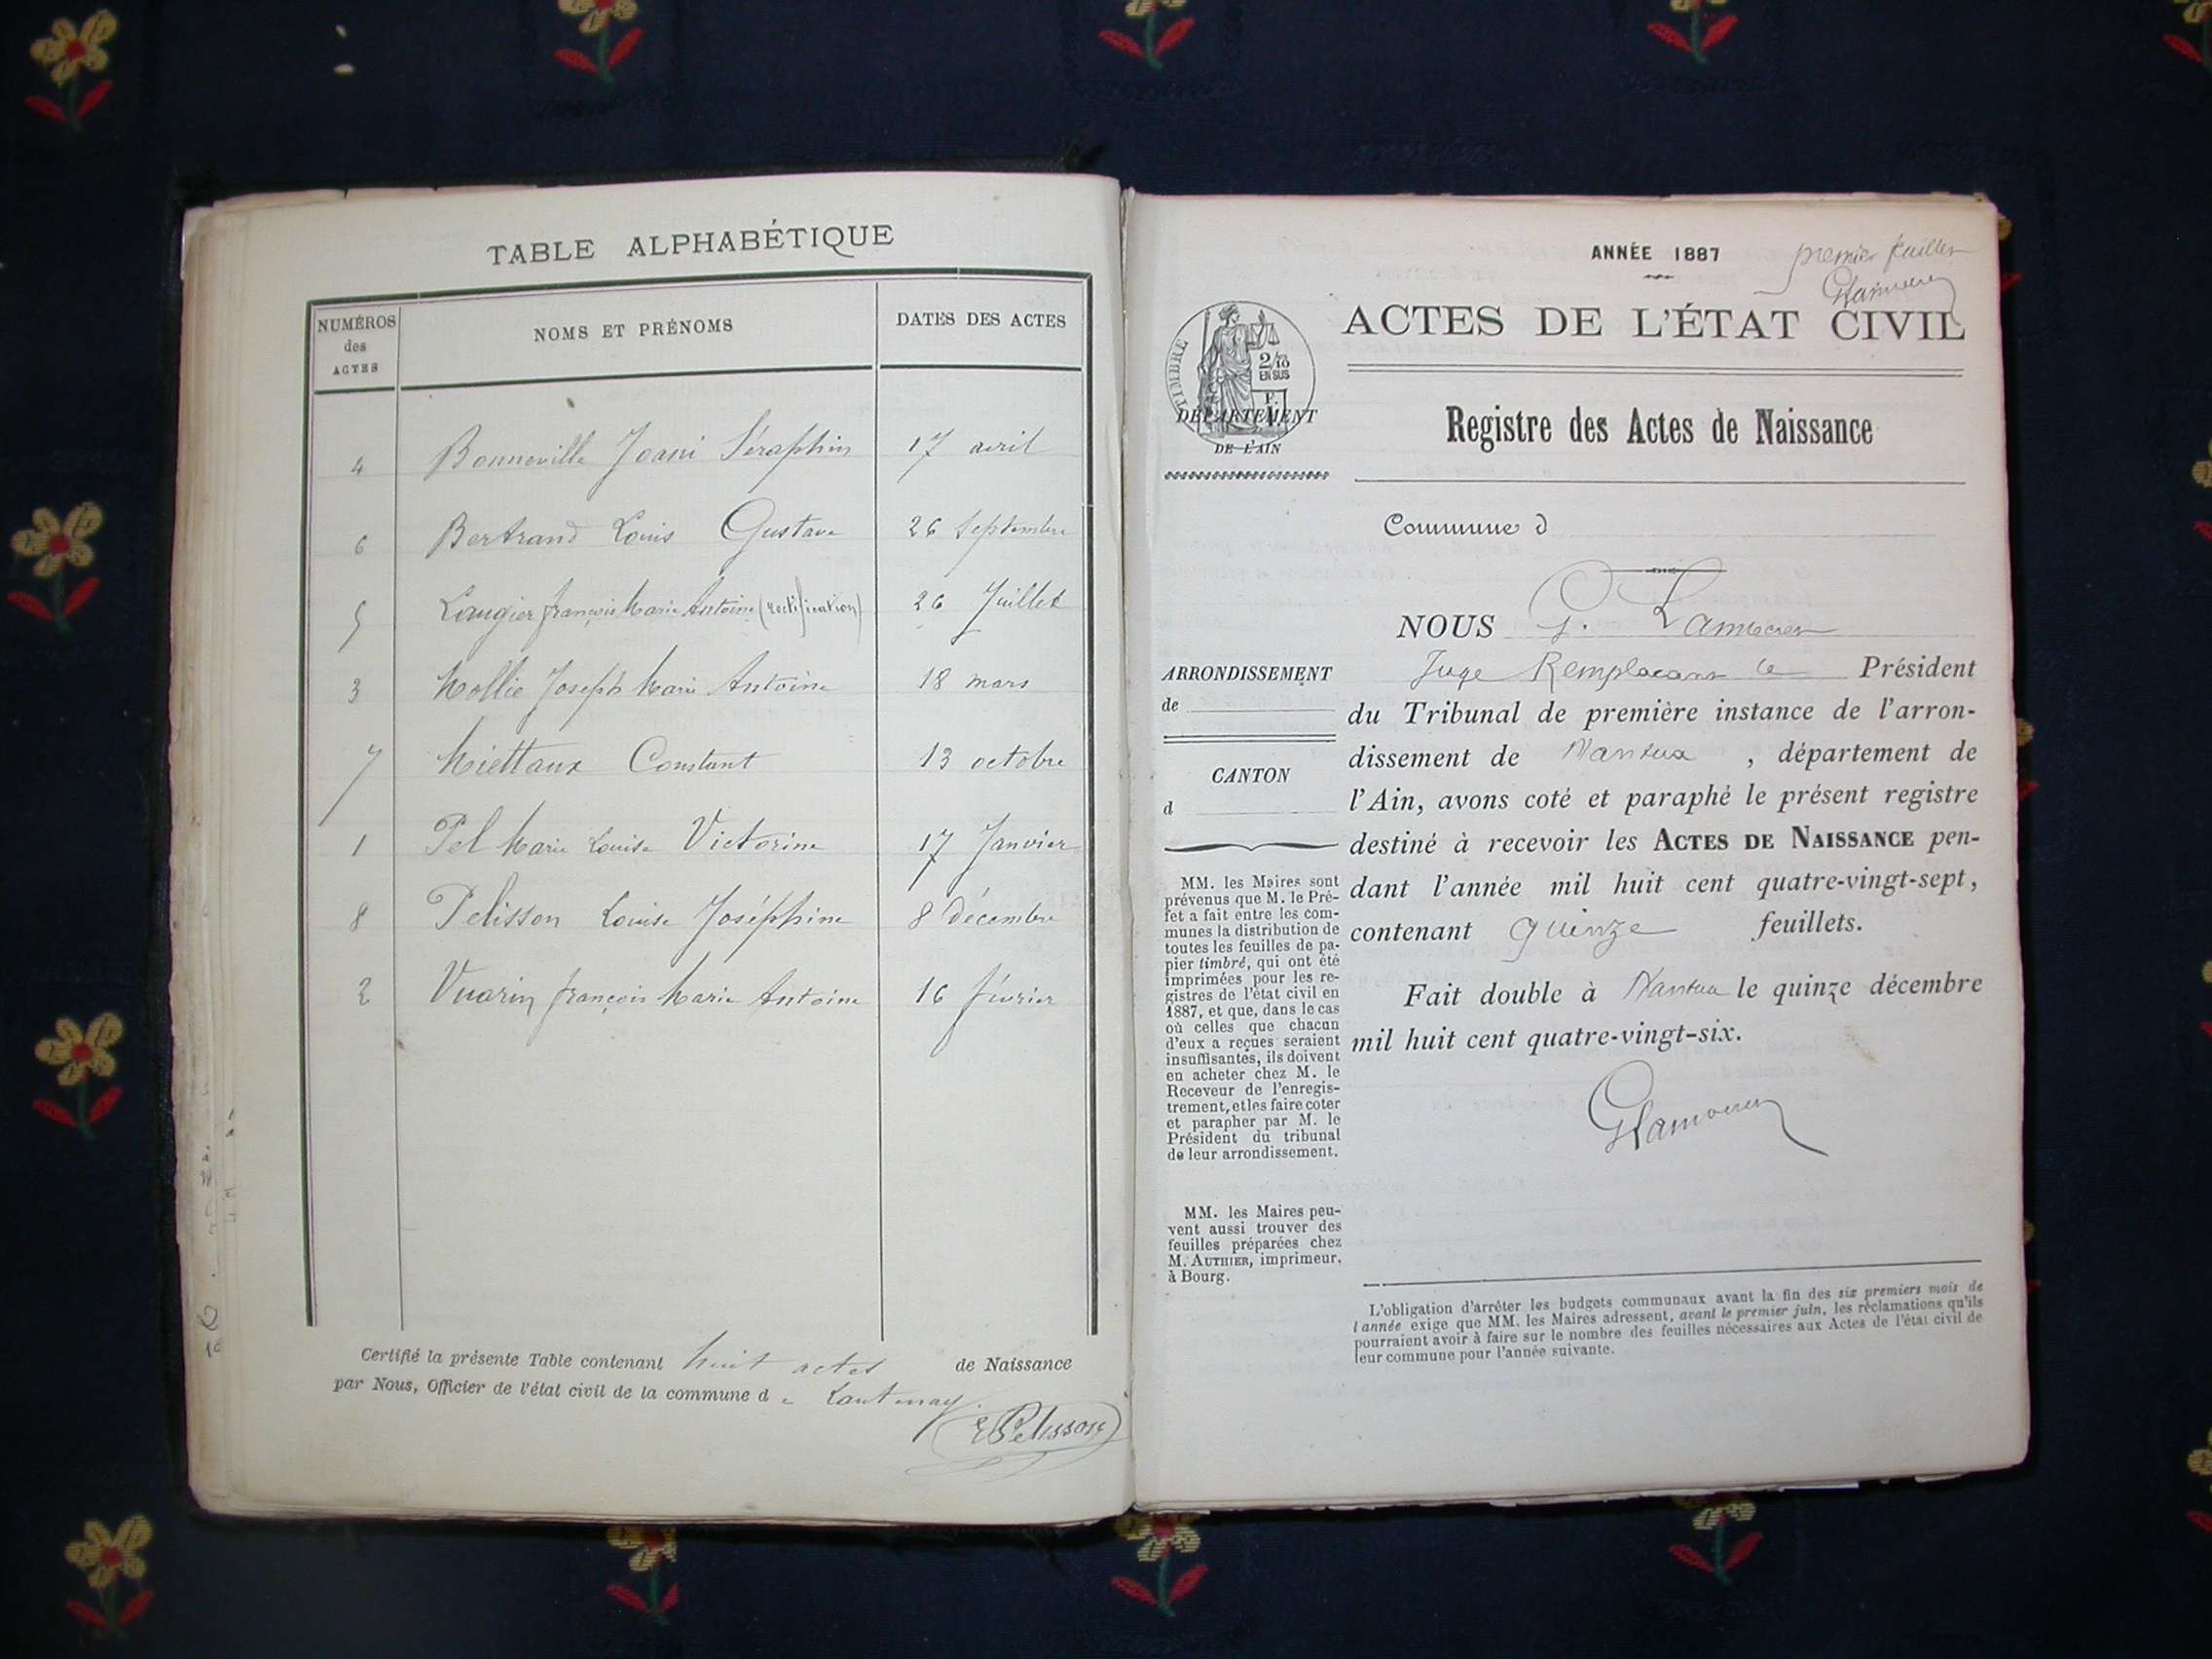 TABLE ALPHABÉTIQUE
NUMÉROS
des
ACTES
NOMS ET PRÉNOMS
DATES DES ACTES
4 Bonneville Joani Séraphin 17 avril
6 Bertrand Louis Gustave 26 Septembre
5 Laugier françois Marie Antoine (rectification) 26 Juillet
3 Mollie Joseph Marie Antoine 18 mars
7 Miettaux Constant 13 octobre
1 Pel Marie Louise Victorine 17 Janvier
8 Pelisson Louise Joséphine 8 décembre
2 Vuarin françois Marie Antoine 16 février
Certifié la présente Table contenant huit actes de Naissance
par Nous, Officier de l'état civil de la commune de Lantenay.
Pelisson
ANNÉE 1887
premier feuillet
ACTES DE L'ÉTAT CIVIL
TIMBRE
2/10
EN SUS
DÉPARTEMENT
DE L'AIN
Registre des Actes de Naissance
Commune d
NOUS G.
Juge Remplaçant le Président
du Tribunal de première instance de l'arron-
dissement de Nantua, département de
l'Ain, avons coté et paraphé le présent registre
destiné à recevoir les ACTES DE NAISSANCE pen-
dant l'année mil huit cent quatre-vingt-sept,
contenant quinze feuillets.
Fait double à Nantua le quinze décembre
mil huit cent quatre-vingt-six.
ARRONDISSEMENT
de
CANTON
d
MM. les Maires sont
prévenus que M. le Pré-
fet a fait entre les com-
munes la distribution de
toutes les feuilles de pa-
pier timbré, qui ont été
imprimées pour les re-
gistres de l'état civil en
1887, et que, dans le cas
où celles que chacun
d'eux a reçues seraient
insuffisantes, ils doivent
en acheter chez M. le
Receveur de l'enregis-
trement, et les faire coter
et parapher par M. le
Président du tribunal
de leur arrondissement.
MM. les Maires peu-
vent aussi trouver des
feuilles préparées chez
M. AUTHIER, imprimeur,
à Bourg.
L'obligation d'arrêter les budgets communaux avant la fin des six premiers mois de
l'année exige que MM. les Maires adressent, avant le premier juin, les réclamations qu'ils
pourraient avoir à faire sur le nombre des feuilles nécessaires aux Actes de l'état civil de
leur commune pour l'année suivante.